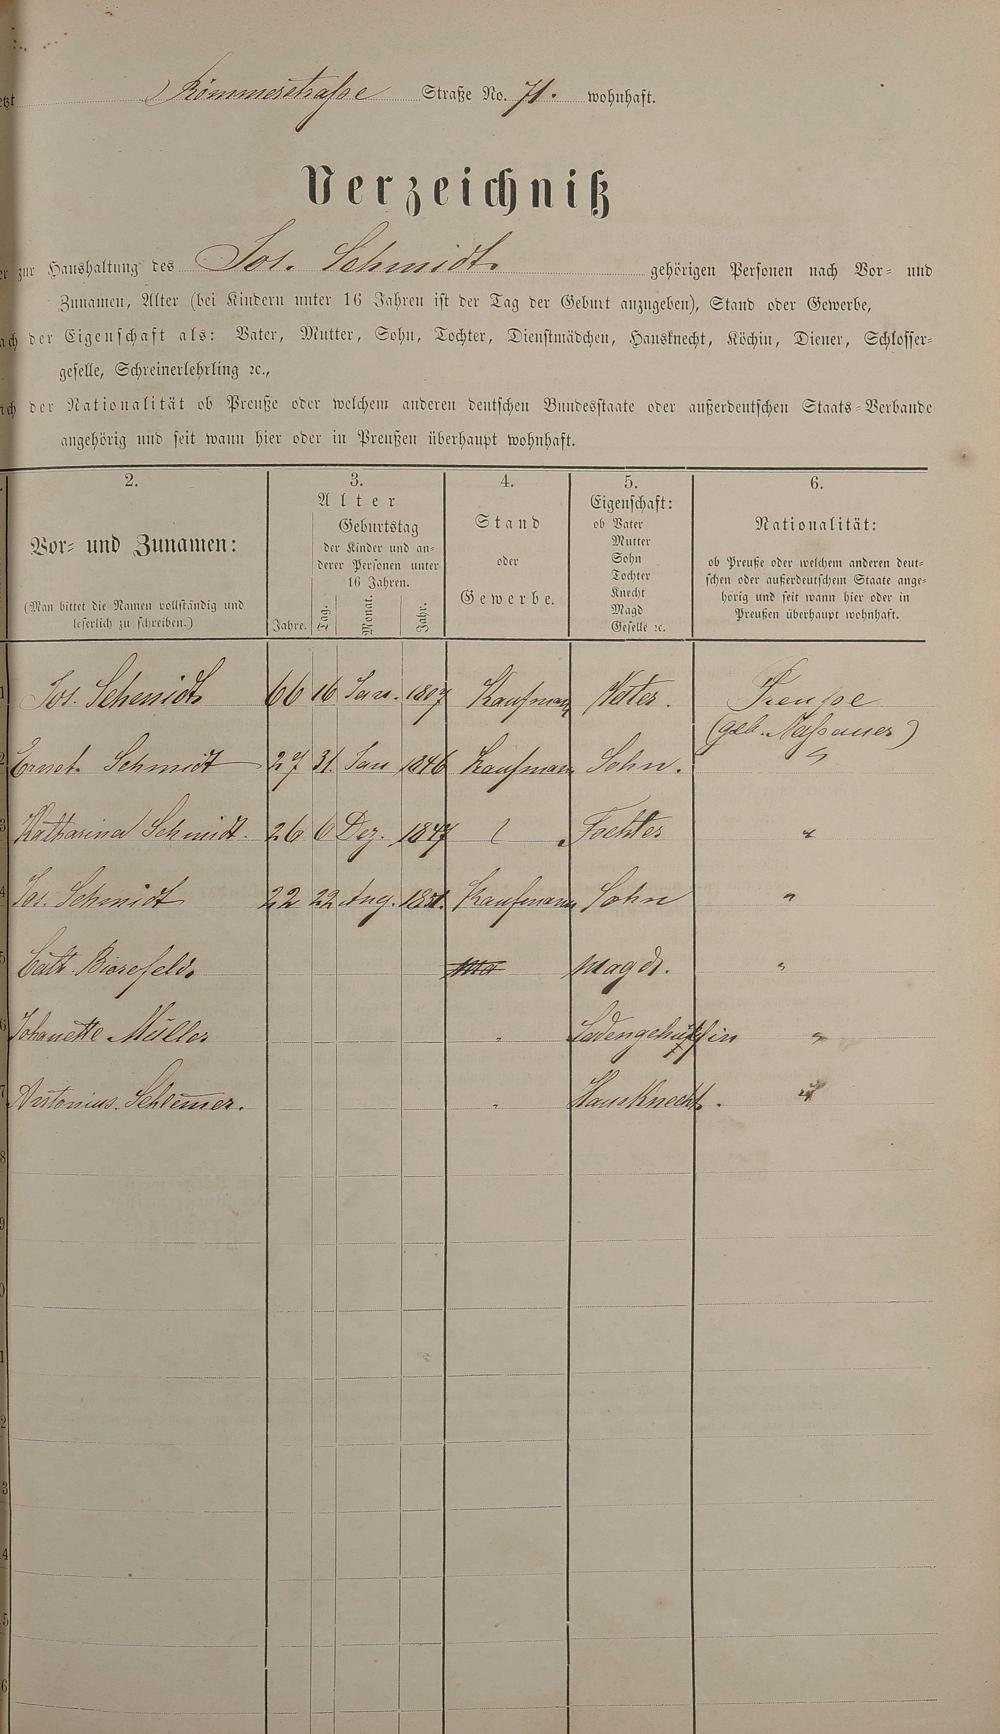 etzt Römmerstraße Straße No. 71. wohnhaft.
Verzeichniß
er zur Haushaltung des Jos. Schmidt gehörigen Personen nach Vor- und
Zunamen, Alter (bei Kindern unter 16 Jahren ist der Tag der Geburt anzugeben), Stand oder Gewerbe,
ach der Eigenschaft als: Vater, Mutter, Sohn, Tochter, Dienstmädchen, Hausknecht, Köchin, Diener, Schlosser-
geselle, Schreinerlehrling ꝛc.,
ich der Nationalität ob Preuße oder welchem anderen deutschen Bundesstaate oder außerdeutschen Staats-Verbande
angehörig und seit wann hier oder in Preußen überhaupt wohnhaft.
2. 3. 4. 5. 6.
Vor- und Zunamen:
(Man bittet die Namen vollständig und
leserlich zu schreiben.)
Alter
Geburtstag
der Kinder und an-
derer Personen unter
16 Jahren.
Jahre. Tag. Monat. Jahr.
Stand
oder
Gewerbe.
Eigenschaft:
ob Vater
Mutter
Sohn
Tochter
Knecht
Magd
Geselle ꝛc.
Nationalität:
ob Preuße oder welchem anderen deut-
schen oder außerdeutschem Staate ange-
hörig und seit wann hier oder in
Preußen überhaupt wohnhaft.
1 Jos. Schmidt 66 16 Jan. 1807 Kaufmann Vater. Preuße
(geb. Naßauer)
2 Ernst Schmidt 27 31. Jan 1846 Kaufmann Sohn. "
3 Katharina Schmidt. 26 6 Dez. 1847 Tochter "
4 Jos. Schmidt 22 22 Aug. 1851. Kaufmann Sohn "
5 Cath. Bierefeld. Ma Magd. "
6 Johanette Müller " Ladengehülfin "
7 Antonius Schlemer. " Hausknecht. "
8
9
0
1
2
3
4
5
6